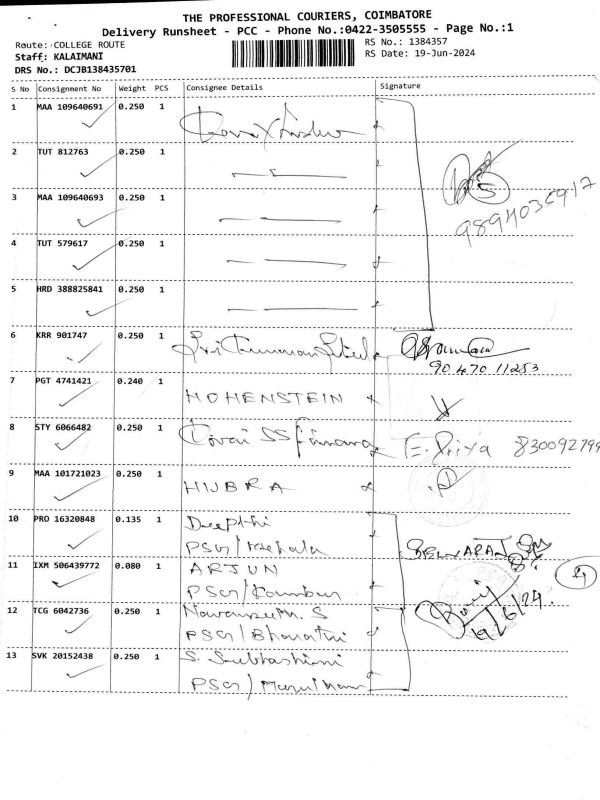 THE PROFESSIONAL COURIERS, COIMBATORE
Delivery Runsheet - PCC - Phone No.:0422-3505555 - Page No.:1
Route: COLLEGE ROUTE
RS No.: 1384357
Staff: KALAIMANI
RS Date: 19-Jun-2024
DRS No.: DCJB138435701
S No Consignment No Weight PCS Consignee Details Signature
1 MAA 109640691 0.250 1
2 TUT 812763 0.250 1
3 MAA 109640693 0.250 1
5
9894035917
4 TUT 579617 0.250 1
5 HRD 388825841 0.250 1
6 KRR 901747 0.250 1
90470 11253
7 PGT 4741421 0.240 1
HOHENSTEIN
8 STY 6066482 0.250 1
Kovai SS E. Priya 83009279
9 MAA 101721023 0.250 1
HIJBRA
10 PRO 16320848 0.135 1 Deepthi
PSG/
11 IXM 506439772 0.080 1 ARJUN
PSG/
12 TCG 6042736 0.250 1 S
PSG/Bharathi
19/6/24.
13 SVK 20152438 0.250 1 S. Subhashini
PSG/